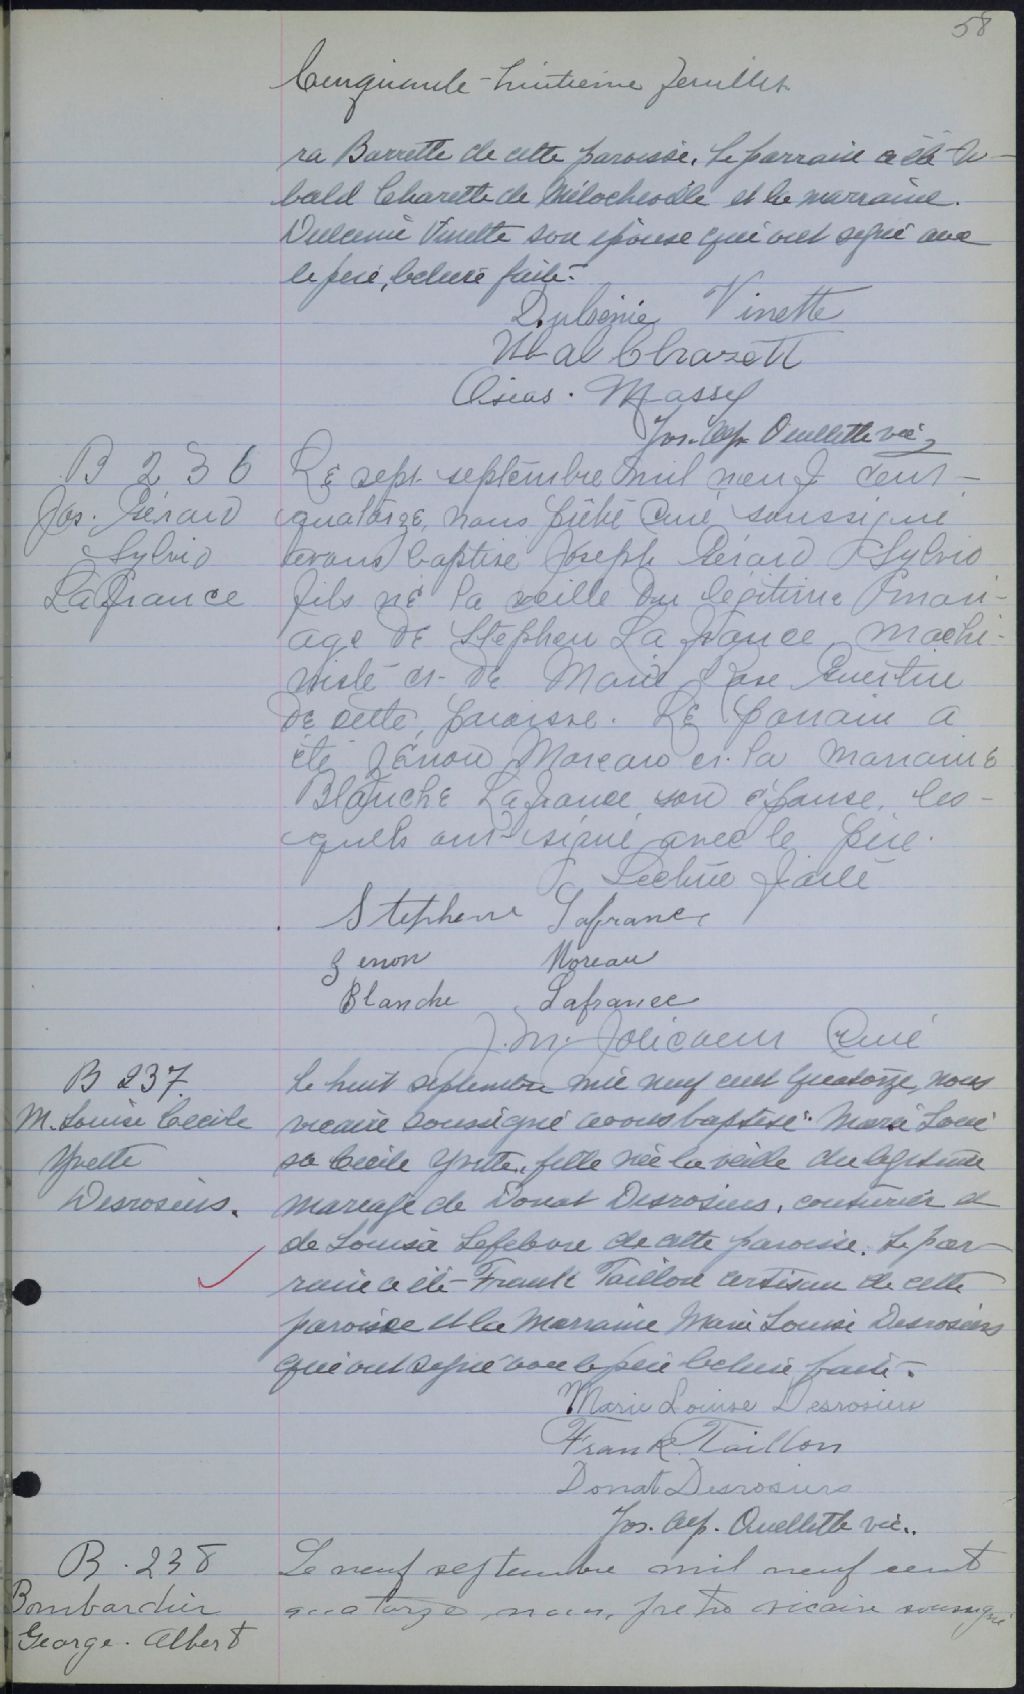 58
Cinquante-huitième feuillet
ra Barrette de cette paroisse. Le parrain a été U-
bald Charette de Mélocheville et la marraine
Dulcinie Vinette son épouse qui ont signé avec
le père, lecture faite.
Dulcinie Vinette
Ubal Charett
Osias. Massy
Jos. Alp. Ouellette vic.
B 236
Jos. Gérard
Sylvio
LaFrance
Le sept septembre mil neuf cent
quatorze, nous prêtre Curé soussigné
avons baptisé Joseph Gérard Sylvio
fils né la veille du légitime mari-
age de Stephen LaFrance, machi-
niste et de Marie Rose Guertin
de cette paroisse. Le parrain a
été Zénon Moreau et la marraine
Blanche Lafrance son épouse, les-
quels ont signé avec le père.
Lecture faite
Stephene Lafrance
Zenon Moreau
Blanche Lafrance
J. M. Jolicoeur Curé
B 237.
M. Louise Cecile
Yvette
Desrosiers.
Le huit septembre mil neuf cent quatorze, nous
vicaire soussigné avons baptisé: Marie Loui
sa Cécile Yvette, fille née la veille du légitime
mariage de Donat Desrosiers, couturier et
de Louisa Lefebvre de cette paroisse. Le par-
rain a été Frank Taillon artisan de cette
paroisse et la marraine Marie Louise Desrosiers
qui ont signé avec le père lecture faite.
Marie Louise Desrosiers
Frank Taillon
Donat Desrosiers
Jos. Alp. Ouellette vic..
B. 238
Bombardier
George. Albert
Le neuf septembre mil neuf cent
quatorze nous, pretre vicaire soussigné